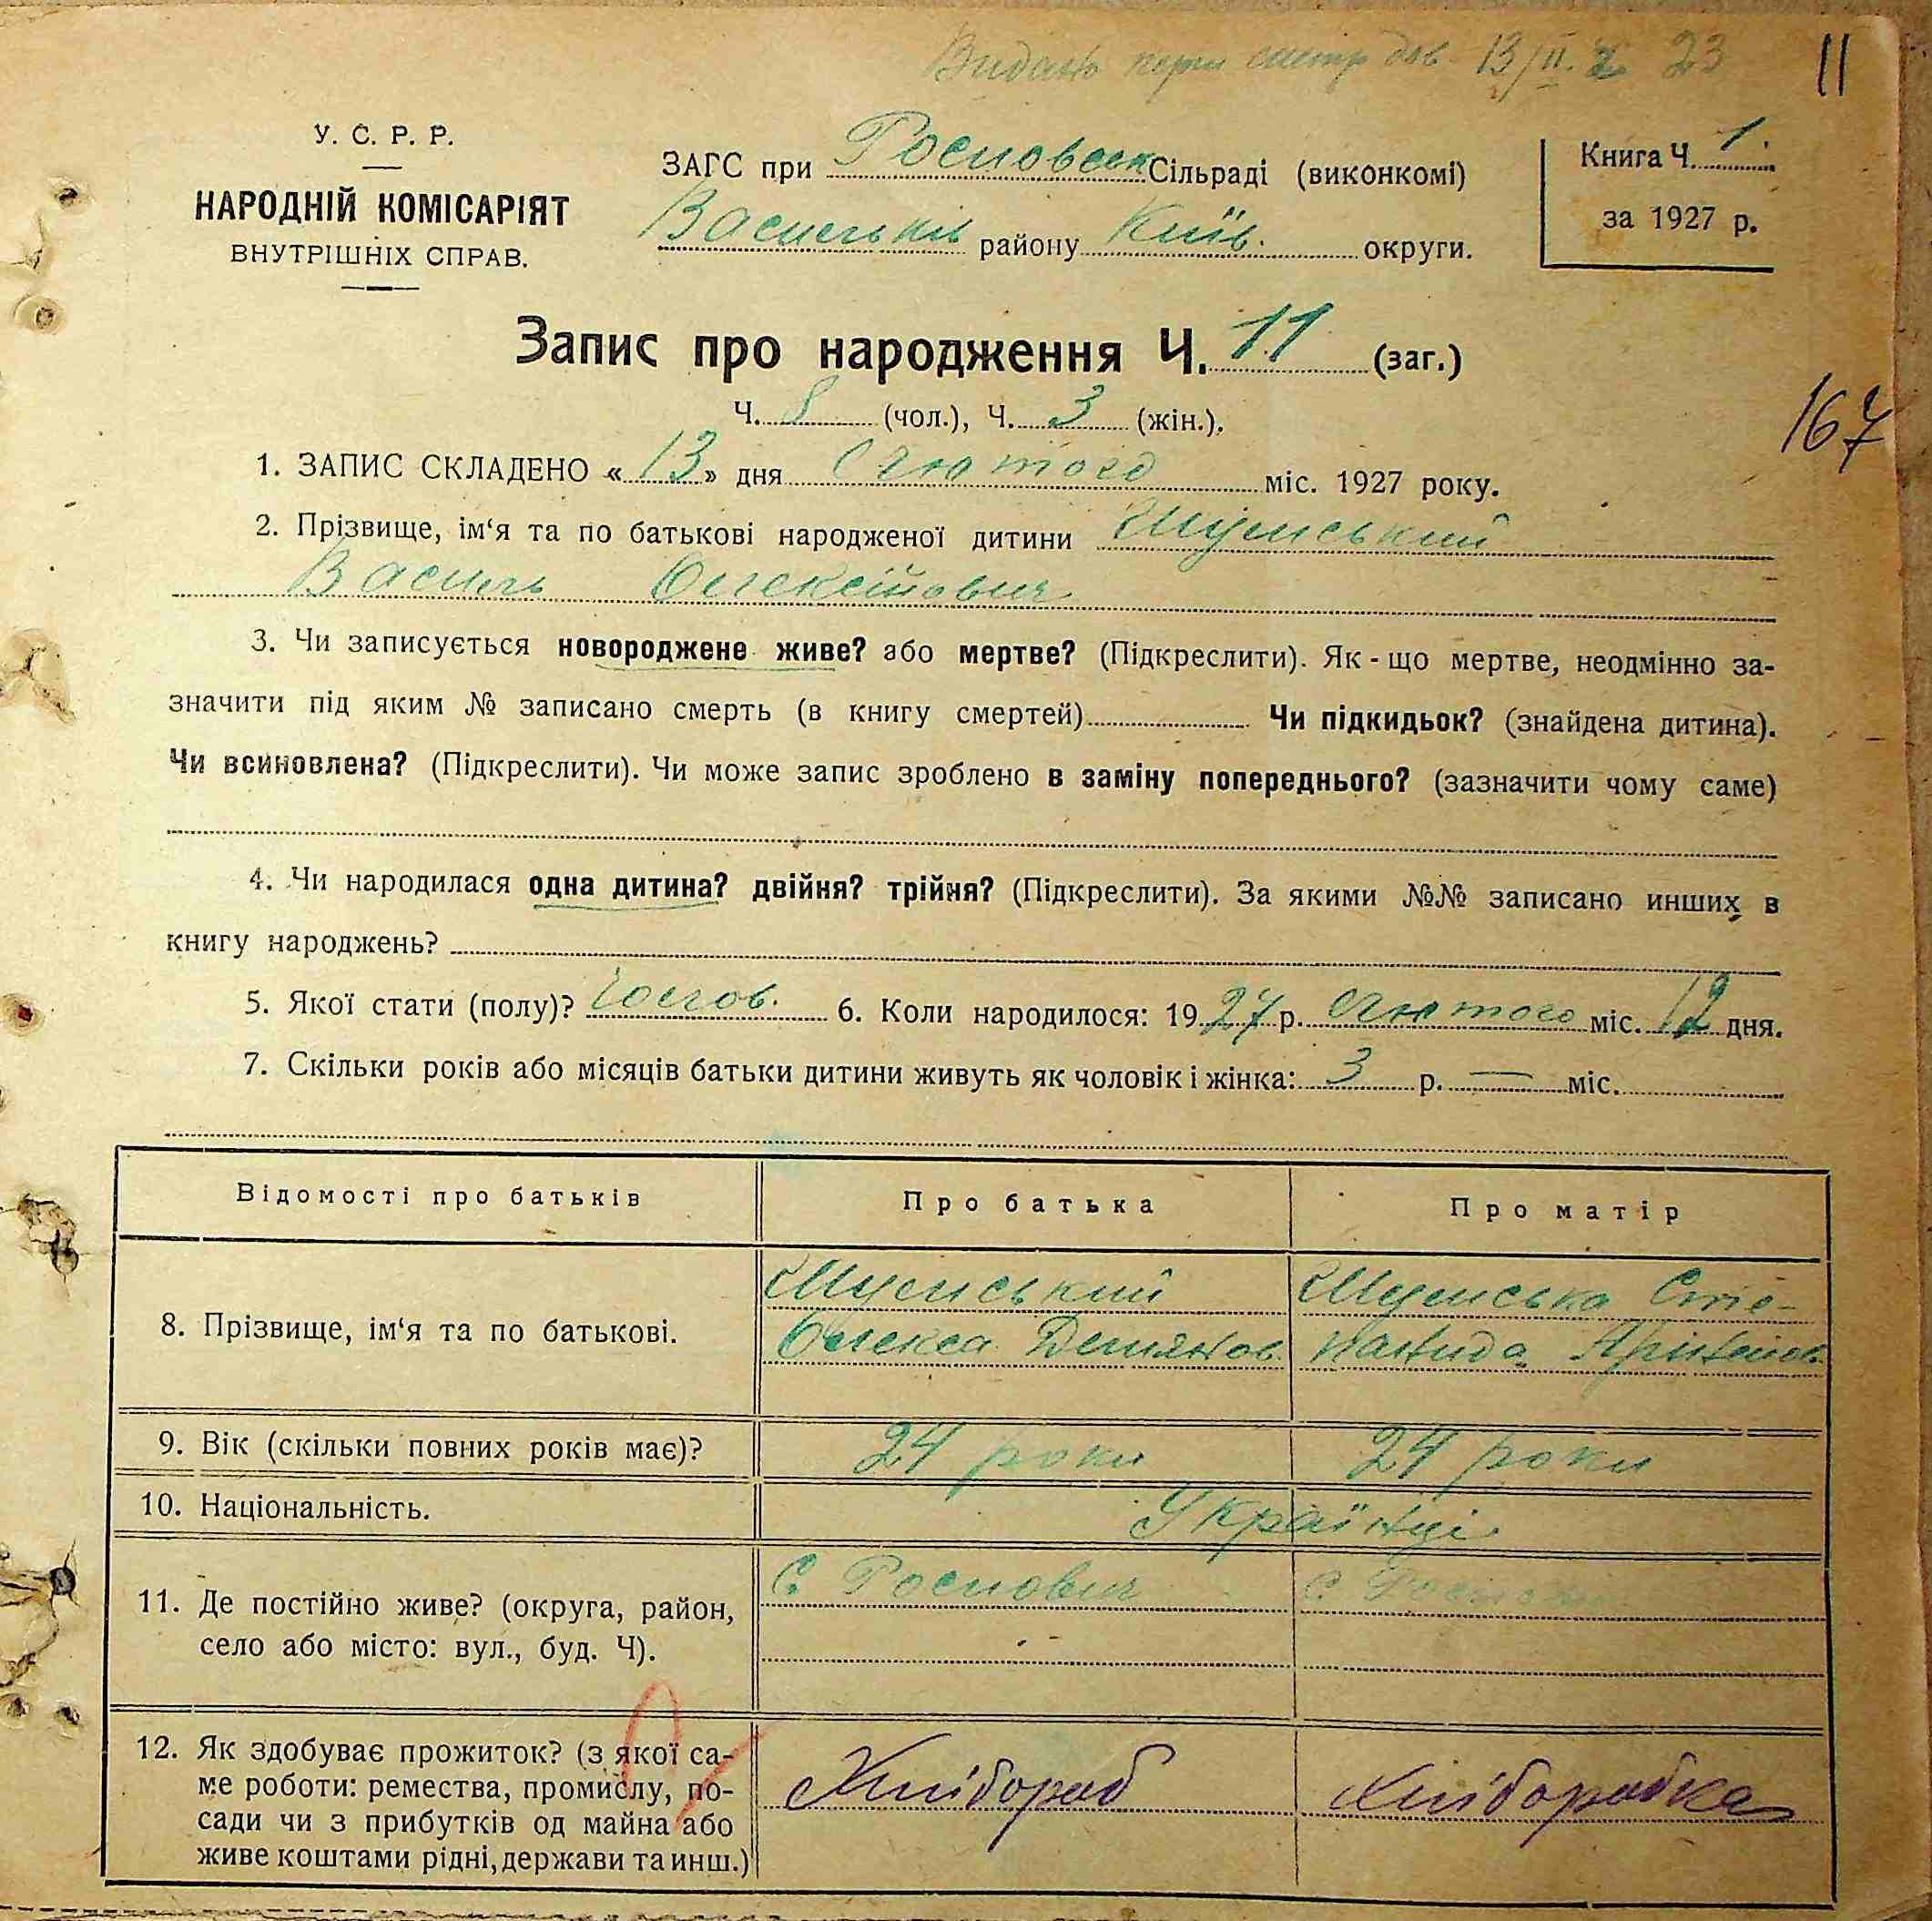 Видано 13/II. 23
11
У. С. Р. Р.
НАРОДНІЙ КОМІСАРІЯТ
ВНУТРІШНІХ СПРАВ.
ЗАГС при Росновськ Сільраді (виконкомі)
Васильків району Київ. округи.
Книга Ч. 1.
за 1927 р.
Запис про народження Ч. 11 (заг.)
Ч. 8 (чол.), Ч. 3 (жін.).
167
1. ЗАПИС СКЛАДЕНО « 13 » дня Лютого міс. 1927 року.
2. Прізвище, ім‘я та по батькові народженої дитини Шумський
Василь Олексійович
3. Чи записується новороджене живе? або мертве? (Підкреслити). Як-що мертве, неодмінно за-
значити під яким № записано смерть (в книгу смертей) Чи підкидьок? (знайдена дитина).
Чи всиновлена? (Підкреслити). Чи може запис зроблено в заміну попереднього? (зазначити чому саме)
4. Чи народилася одна дитина? двійня? трійня? (Підкреслити). За якими №№ записано инших в
книгу народжень?
5. Якої стати (полу)? Чолов. 6. Коли народилося: 1927 р. Лютого міс. 12 дня.
7. Скільки років або місяців батьки дитини живуть як чоловік і жінка: 3 р. — міс.
Відомості про батьків Про батька Про матір
8. Прізвище, ім‘я та по батькові.
Шумський
Олекса Демянов.
Шумська Сте-
панида
9. Вік (скільки повних років має)? 24 роки 24 роки
10. Національність. Українці
11. Де постійно живе? (округа, район,
село або місто: вул., буд. Ч).
С.
С.
12. Як здобуває прожиток? (з якої са-
ме роботи: ремества, промислу, по-
сади чи з прибутків од майна або
живе коштами рідні, держави та инш.)
Хлібороб
Хліборобка